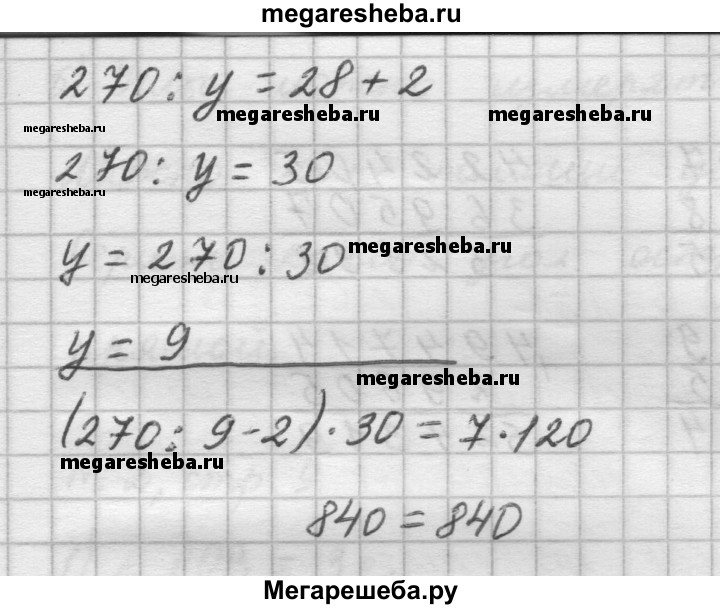 megaresheba.ru
270 : y = 28 + 2
megaresheba.ru megaresheba.ru megaresheba.ru
270 : y = 30
megaresheba.ru
y = 270 : 30 megaresheba.ru
megaresheba.ru
y = 9
megaresheba.ru
(270 : 9 - 2) · 30 = 7 · 120
megaresheba.ru
840 = 840
Мегарешеба.ру